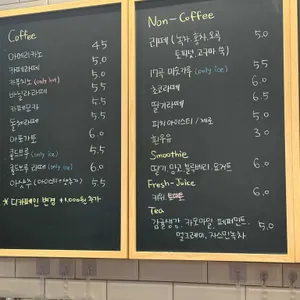 Coffee
아메리카노 4.5
카페라떼 5.0
카푸치노 (only hot) 5.0
바닐라라떼 5.5
카페모카 5.5
돌체라떼 5.5
아포가토 6.0
콜드브루 (only ice) 5.5
콜드브루 라떼 (only ice) 6.0
아샷추 (아이스티+샷추가) 5.5
* 디카페인 변경 +1,000원 추가
Non-Coffee
라떼 (녹차, 홍차, 오곡 5.0
토피넛, 고구마, 쑥)
17곡 미숫가루 (only ice) 5.5
초코라떼 6.5
딸기라떼 6.5
피치아이스티 / 제로 5.0
흰우유 3.0
Smoothie
딸기, 망고, 블루베리, 요거트 6.0
Fresh-Juice
키위, 토마토 6.0
Tea
감귤생강, 카모마일, 페퍼민트, 5.0
얼그레이, 자스민녹차